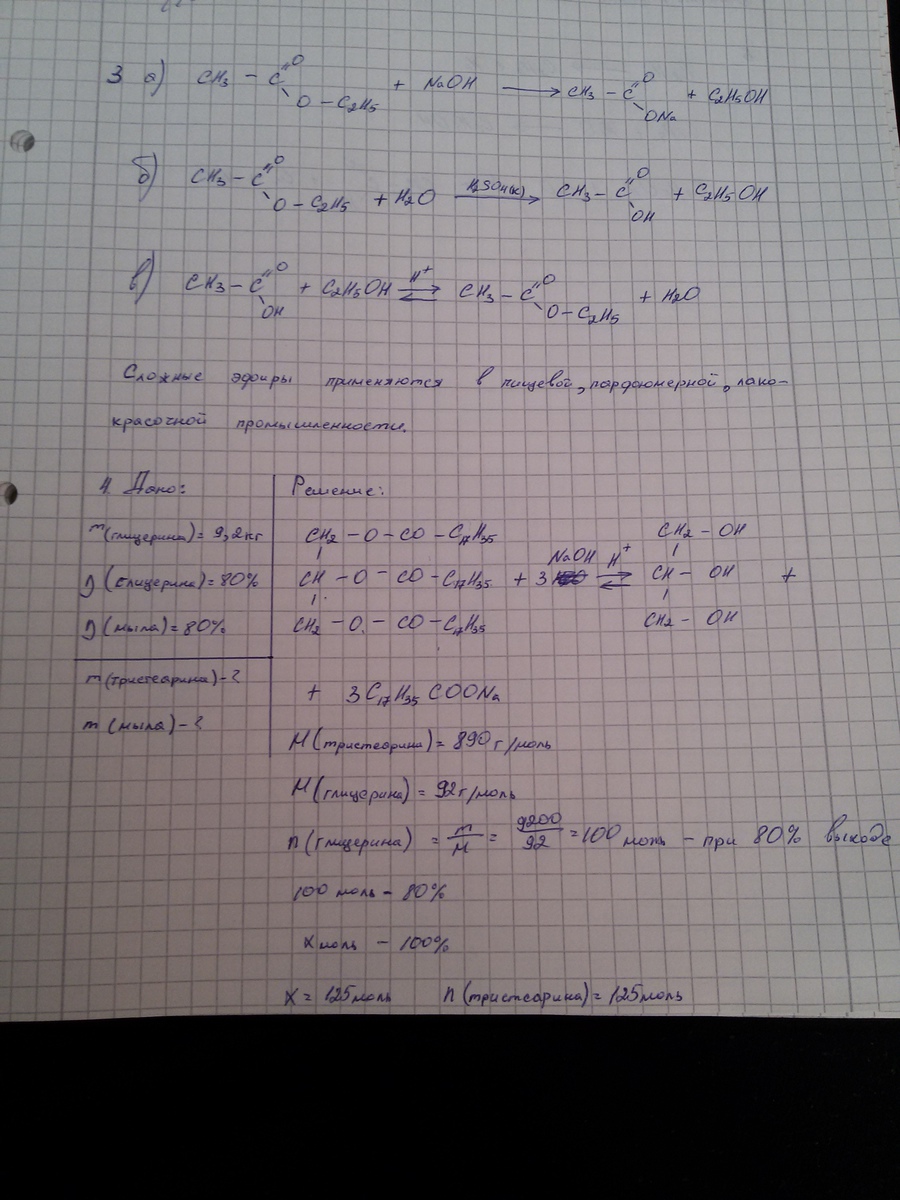 3 а) CH₃ – C =O O – C₂H₅ + NaOH → CH₃ – C =O ONa + C₂H₅OH
б) CH₃ – C =O O – C₂H₅ + H₂O H₂SO₄(к) → CH₃ – C =O OH + C₂H₅OH
в) CH₃ – C =O OH + C₂H₅OH H⁺ ⇄ CH₃ – C =O O – C₂H₅ + H₂O
Сложные эфиры применяются в пищевой, парфюмерной, лако–
красочной промышленности.
4. Дано:
m(глицерина) = 9,2кг
η (глицерина) = 80%
η (мыла) = 80%
m(тристеарина) – ?
m (мыла) – ?
Решение:
CH₂ – O – CO – C₁₇H₃₅ CH₂ – OH
CH – O – CO – C₁₇H₃₅ + 3 NaOH H⁺ ⇄ CH – OH +
CH₂ – O – CO – C₁₇H₃₅ CH₂ – OH
+ 3C₁₇H₃₅COONa
M(тристеарина) = 890г/моль
M(глицерина) = 92г/моль
n(глицерина) = m/M = 9200/92 = 100 моль – при 80% выходе
100 моль – 80%
x моль – 100%
x = 125 моль n(тристеарина) = 125 моль